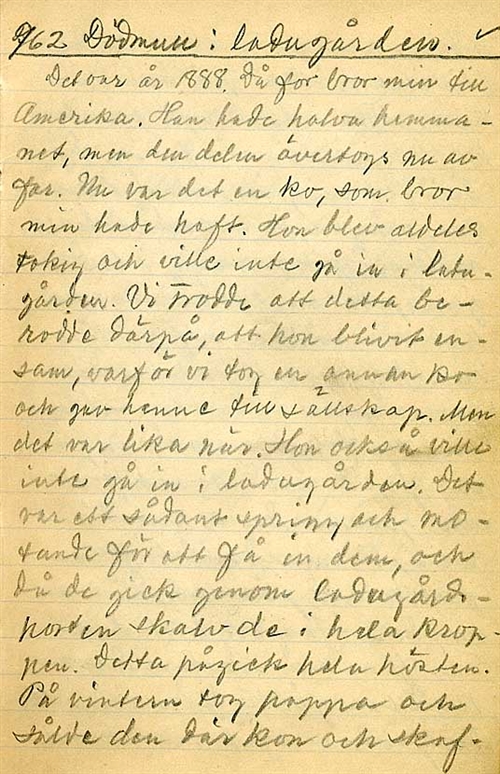 962 Dödmull i ladugården. ✓
Det var år 1888. Då for bror min till
Amerika. Han hade halva hemma-
net, men den delen övertogs nu av
far. Nu var det en ko, som bror
min hade haft. Hon blev alldeles
tokig och ville inte gå in i ladu-
gården. Vi trodde att detta be-
rodde därpå, att hon blivit en-
sam, varför vi tog en annan ko
och gav henne till sällskap. Men
det var lika när. Hon också ville
inte gå in i ladugården. Det
var ett sådant spring och mo-
tande för att få in dem, och
då de gick genom ladugårds-
porten skalv de i hela krop-
pen. Detta pågick hela hösten.
På vintern tog pappa och
sålde den där kon och skaf-